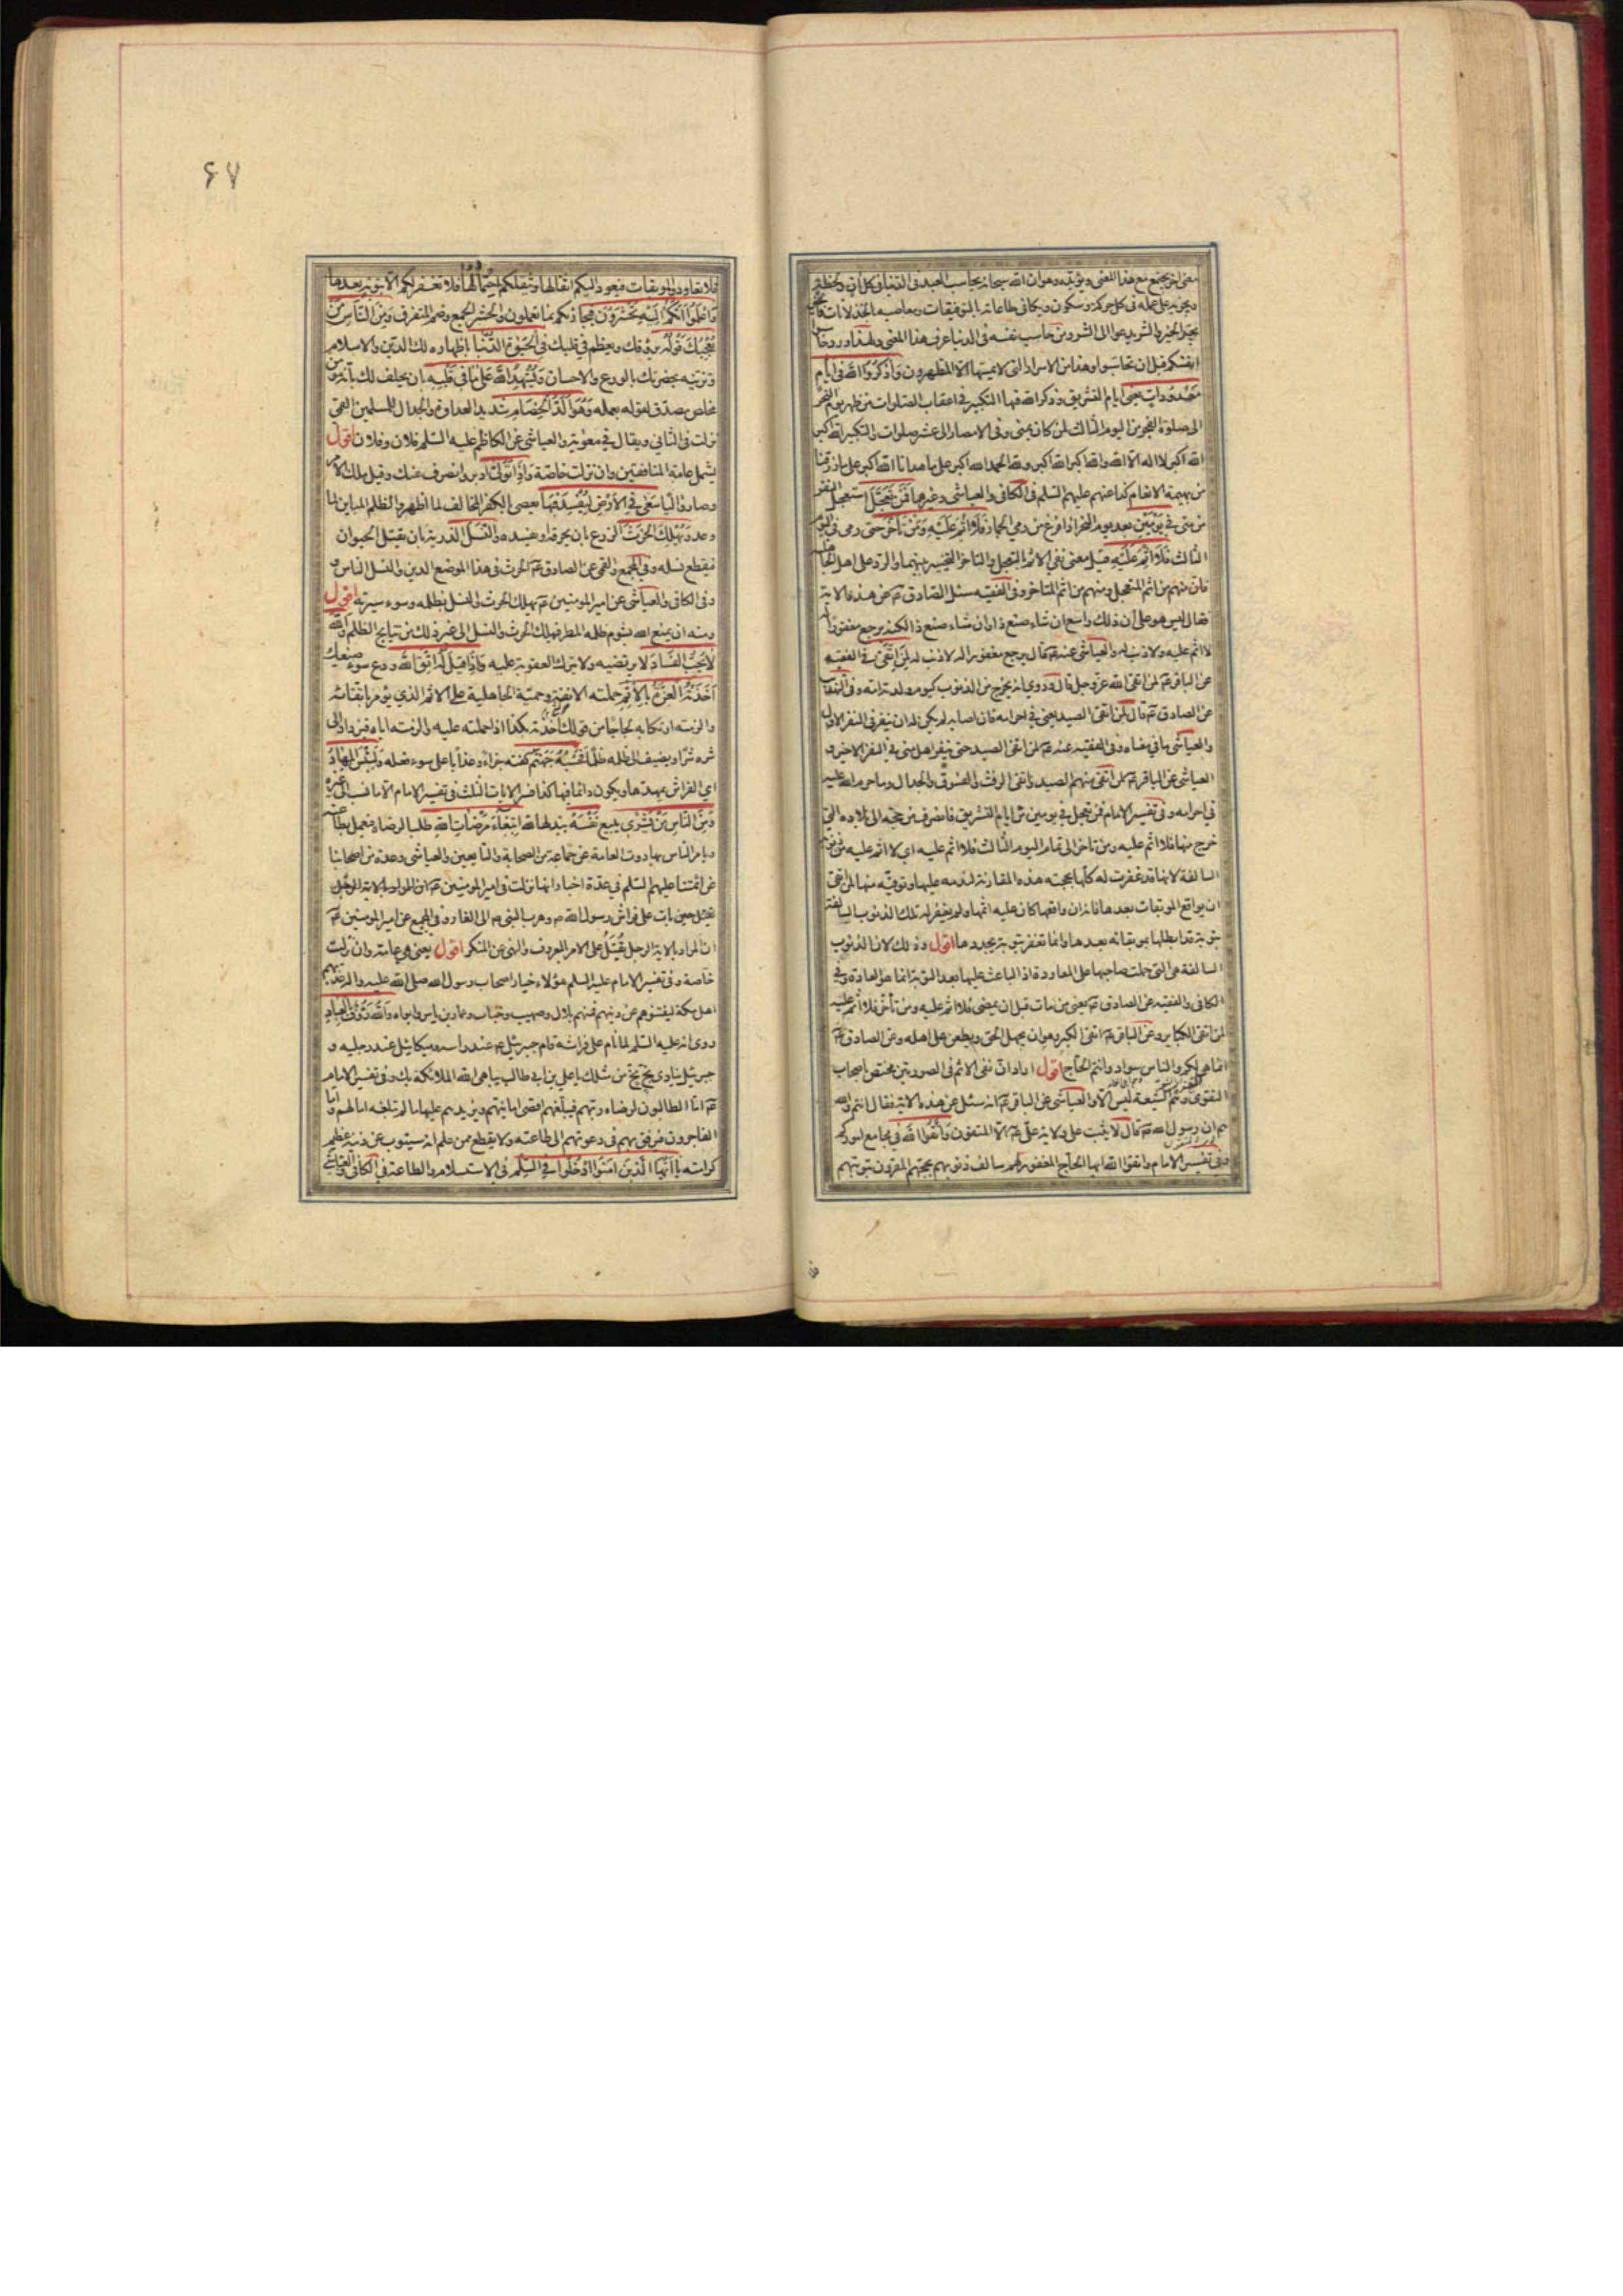 معنى اخر يجتمع مع هذا المعنى ويؤيده وهو ان الله سبحانه يحاسب العبد فى الدنيا فى كل ان ولحظة
ويجزيه على عمله فى كل حركة وسكون ويكافى طاعاته بالتوفيقات ومعاصيه بالخذلانات
يجر الخير والشر يدعو الى الشر ومن حاسب نفسه فى الدنيا عرف هذا المعنى ولهذا ورد حاسبوا
انفسكم قبل ان تحاسبوا وهذا من الاسرار التى لا يمسها الا المطهرون وَاذْكُرُوا اللهَ فى ايام
مَعْدُودَاتٍ يعنى ايام التشريق وذكر الله فيها التكبير فى اعقاب الصلوات من ظهر يوم النحر
الى صلوة الفجر من اليوم الثالث لمن كان بمنى وفى الامصار الى عشر صلوات والتكبير الله اكبر
الله اكبر لا اله الا الله والله اكبر الله اكبر ولله الحمد الله اكبر على ما هدانا الله اكبر على ما رزقنا
من بهيمة الانعام كذا عنهم عليهم السلم فى الكافى والعياشى وغيرها فَمَنْ تَعَجَّلَ استعجل النفر
من منى فى يَوْمَيْنِ بعد يوم النحر اذا فرغ من رمى الجمار فَلَا اِثْمَ عَلَيْهِ وَمَنْ تَاَخَّرَ حتى رمى فى اليوم
الثالث فَلَا اِثْمَ عَلَيْهِ قيل معنى نفى الاثم بالتعجل والتاخر التخيير بينهما والرد على اهل
فان منهم من اثم المتعجل ومنهم من اثم المتاخر وفى الفقيه سئل الصادق ع عن هذه الاية
فقال ليس هو على ان ذلك واسع ان شاء صنع ذا وان شاء صنع ذا لكنه يرجع مغفورا له
لا اثم عليه ولا ذنب له والعياشى عنه ع قال يرجع مغفورا له لا ذنب له لِمَنِ اتَّقَى فى الفقيه
عن الباقر ع لمن اتقى الله عز وجل قال وروى انه يخرج من الذنوب كيوم ولدته امه وفى
عن الصادق ع قال لمن اتقى الصيد يعنى فى احرامه فان اصابه لم يكن له ان ينفر فى النفر الاول
والعياشى ما فى معناه وفى الفقيه عنه ع لمن اتقى الصيد حتى ينفر اهل منى فى النفر الاخير و
العياشى عن الباقر ع لمن اتقى منهم الصيد واتقى الرفث والفسوق والجدال وما حرم الله عليه
فى احرامه وفى تفسير الامام فمن تعجل فى يومين من ايام التشريق فانصرف من حجه الى بلاده التى
خرج منها فلا اثم عليه ومن تاخر الى تمام اليوم الثالث فلا اثم عليه اى لا اثم عليه من ذنوبه
السالفة لانها قد غفرت له كلها بحجته هذه المقارنة لندمه عليها وتوقيه منها لمن اتقى
ان يواقع الموبقات بعدها فانه ان واقعها كان عليه اثمها ولم يغفر له تلك الذنوب السالفة
بتوبة قد ابطلها بموبقاته بعدها وانما تغفر بتوبة يجددها اقول وذلك لان الذنوب
السالفة هى التى حملت صاحبها على المعاودة اذ الباعث عليها بعد التوبة انما هو العادة وفى
الكافى والفقيه عن الصادق ع يعنى من مات قبل ان يمضى فلا اثم عليه ومن تأخر فلا اثم عليه
لمن اتقى الكباير وعن الباقر ع اتقى الكبر وهو ان يجهل الحق ويطعن على اهله وعن الصادق ع
انما هى لكم والناس سواد وانتم الحاج اقول اراد ان نفى الاثم فى الصورتين مختص باصحاب
التقوى وهم الشيعة ليس الا والعياشى عن الباقر ع انه سئل عن هذه الاية فقال انتم والله
هم ان رسول الله ص قال لا يثبت على ولاية على ع الا المتقون وَاتَّقُوا اللهَ فى مجامع اموركم
وفى تفسير الامام واتقوا الله ايها الحاج المغفور لهم سالف ذنوبهم بحجتهم المقرون بتوبتهم
۶۷
فلا تعاودوا الموبقات فيعود اليكم اثقالها ويثقلكم احتمالها فلا تغفر لكم الا بتوبة بعدها
وَاعْلَمُوا اَنَّكُمْ اِلَيْهِ تُحْشَرُونَ فيجازيكم بما تعملون والحشر الجمع وضم المتفرق وَمِنَ النَّاسِ مَنْ
يُعْجِبُكَ قَوْلُهُ يروقك ويعظم فى قلبك فِى الْحَيٰوةِ الدُّنْيَا باظهاره لك الدين والاسلام
وتزينه بحضرتك بالورع والاحسان وَيُشْهِدُ اللهَ عَلٰى مَا فِى قَلْبِهِ بان يحلف لك بأنه مؤمن
مخلص مصدق لقوله بعمله وَهُوَ اَلَدُّ الْخِصَامِ شديد العداوة والجدال للمسلمين القمى
نزلت فى الثانى ويقال فى معوية والعياشى عن الكاظم عليه السلم فلان وفلان اقول
يشمل عامة المنافقين وان نزلت خاصة وَاِذَا تَوَلّٰى ادبر وانصرف عنك وقيل ملك الامر
وصار واليا سَعٰى فِى الْاَرْضِ لِيُفْسِدَ فِيهَا بعصى بالكفر المخالف لما اظهر والظلم المباين لما
وعد وَيُهْلِكَ الْحَرْثَ الزرع بان يحرقه او يفسده وَالنَّسْلَ الذرية بان يقتل الحيوان
فيقطع نسله وفى المجمع والقمى عن الصادق ع الحرث فى هذا الموضع الدين والنسل الناس و
وفى الكافى والعياشى عن امير المومنين ع يهلك الحرث والنسل بظلمه وسوء سيرته اقول
ومنه ان يمنع الله بشوم ظلمه المطر فيهلك الحرث والنسل الى غير ذلك من نتايج الظلم وَاللهُ
لَا يُحِبُّ الْفَسَادَ لا يرتضيه ولا يترك العقوبة عليه وَاِذَا قِيلَ لَهُ اتَّقِ اللهَ ودع سوء صنيعك
اَخَذَتْهُ الْعِزَّةُ بِالْاِثْمِ حملته الانفة وحمية الجاهلية على الاثم الذى يؤمر باتقائه
والزمته ارتكابه لجاجا من قولك اخذته بكذا اذا حملته عليه والزمته اياه فيزداد الى
شره شرا ويضيف الى ظلمه ظلما فَحَسْبُهُ جَهَنَّمُ كفته جزاء وعذابا على سوء فعله وَلَبِئْسَ الْمِهَادُ
اى الفراش يمهدها ويكون دائما فيها كذا فسر الايات الثلث فى تفسير الامام الا ما نسب الى غيره
وَمِنَ النَّاسِ مَنْ يَشْرِى يبيع نَفْسَهُ يبذلها لله ابْتِغَاءَ مَرْضَاتِ اللهِ طلبا لرضاه فيعمل بطاعته
ويامر الناس بها روت العامة عن جماعة من الصحابة والتابعين والعياشى وعدة من اصحابنا
عن ائمتنا عليهم السلم فى عدة اخبار انها نزلت فى امير المومنين ع ان المراد بالاية الرجل
يقتل حين بات على فراش رسول الله ص وهرب النبى ص الى الغار وفى المجمع عن امير المومنين ع
ان المراد بالاية الرجل يُقتل على الامر بالمعروف والنهى عن المنكر اقول يعنى هى عامة وان نزلت
خاصة وفى تفسير الامام عليه السلم هؤلاء خيار اصحاب رسول الله صلى الله عليه واله عذبهم
اهل مكة ليفتنوهم عن دينهم فمنهم بلال وصهيب وخباب وعمار بن ياسر وابواه وَاللهُ رَؤُفٌ بِالْعِبَادِ
روى انه عليه السلم لما نام على فراشه قام جبرئيل ع عند راسه وميكائيل عند رجليه و
جبرئيل ينادى بخ بخ من مثلك يا على بن ابى طالب يباهى الله الملائكة بك وفى تفسير الامام
ع اما الطالبون لرضاء ربهم فيبلغهم اقصى امانيهم ويزيدهم عليها ما لم تبلغه امالهم واما
الفاجرون فيرفق بهم فى دعوتهم الى طاعته ولا يقطع ممن علم انه سيتوب عن ذنبه عظيم
كرامته يَا اَيُّهَا الَّذِينَ اٰمَنُوا ادْخُلُوا فِى السِّلْمِ فى الاستسلام والطاعة فى الكافى والعياشى